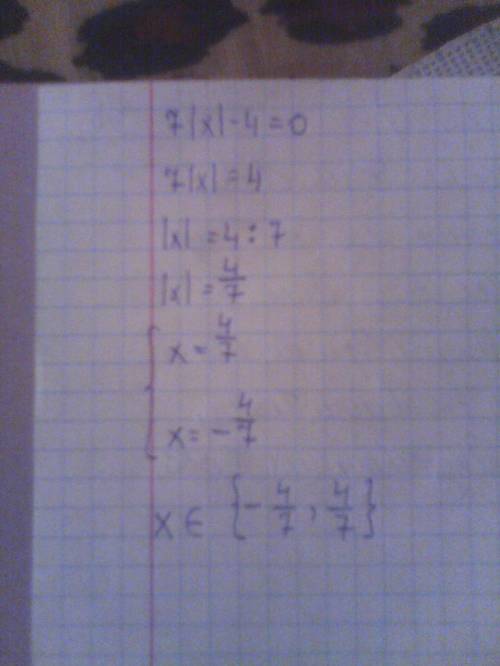 7|x| - 4 = 0
7|x| = 4
|x| = 4 : 7
|x| = 4/7
{ x = 4/7
x = - 4/7
x ∈ {- 4/7, 4/7}